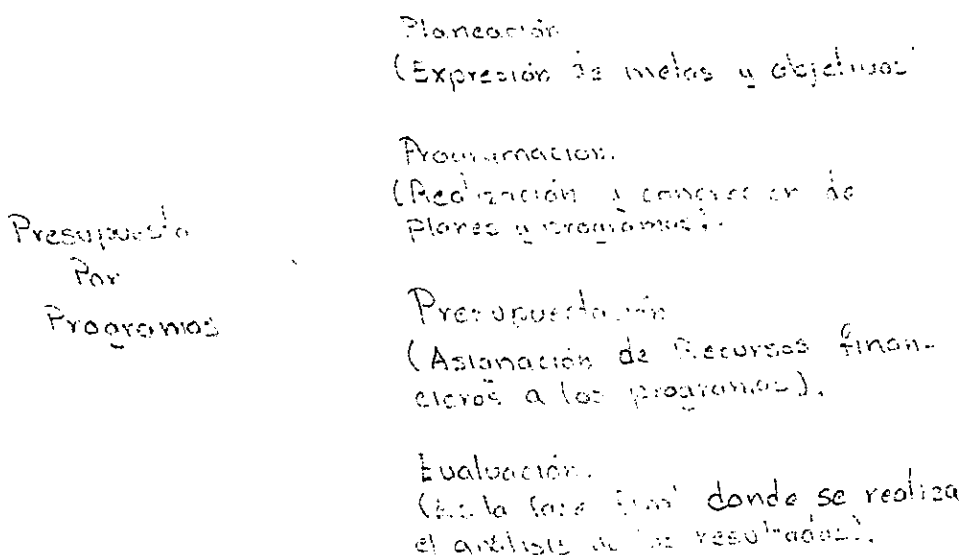 Planeación
(Expresión de metas y objetivos
Programación.
(Realización y concreción de
planes y programas).
Presupuesto
Por
Programas
Presupuestación
(Asignación de Recursos finan-
cieros a los programas).
Evaluación.
(Es la fase final donde se realiza
el análisis de los resultados).